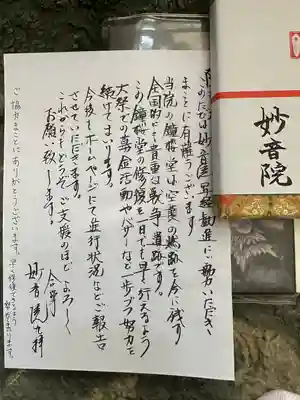 このたびは妙音院早経勧進にご協力いただき
まことに有難うございます。
当院の鏡桜堂は空襲の
全国的にも貴重な
この鏡桜堂の修復を一日でも早く行えますよう
大祭での募金活動やバザーなど一歩づつ努力を
続けてまいります。
今後もホームページにて進行状況などご報告
させていただきます。
これからもどうぞご支援のほどよろしく
お願い致します。
合掌
妙音院
ご協力まことにありがとうございます。
妙音院